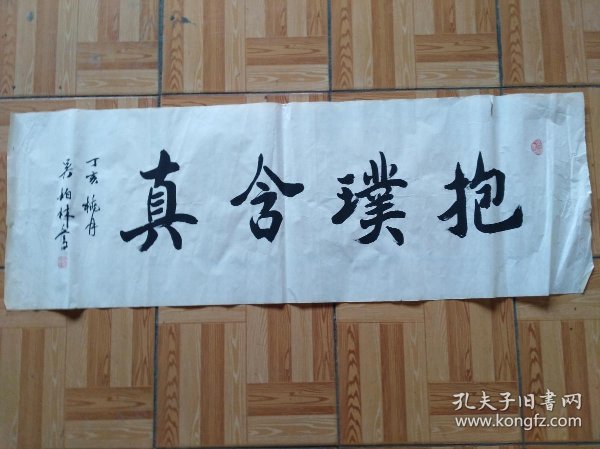 抱璞含真
丁亥桃月
吴柏林书
孔夫子旧书网
www.kongfz.com